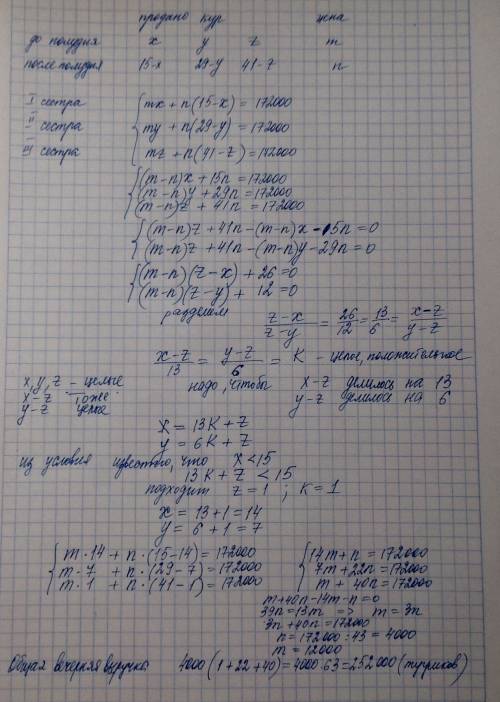 продано кур цена
до полудня x y z m
после полудня 15-x 29-y 41-z n
I сестра { mx + n(15-x) = 172000
II сестра my + n(29-y) = 172000
III сестра mz + n(41-z) = 172000
{ (m-n)x + 15n = 172000
(m-n)y + 29n = 172000
(m-n)z + 41n = 172000
{ (m-n)z + 41n - (m-n)x - 15n = 0
(m-n)z + 41n - (m-n)y - 29n = 0
{ (m-n)(z-x) + 26 = 0
(m-n)(z-y) + 12 = 0
разделим (z-x)/(z-y) = 26/12 = 13/6 = (x-z)/(y-z)
(x-z)/13 = (y-z)/6 = K - целое, положительное
x, y, z - целые
x-z тоже
y-z целые
надо, чтобы x-z делилось на 13
y-z делилось на 6
x = 13K + z
y = 6K + z
из условия известно, что x < 15
13K + z < 15
подходит z = 1 ; K = 1
x = 13 + 1 = 14
y = 6 + 1 = 7
{ m·14 + n·(15-14) = 172000
m·7 + n·(29-7) = 172000
m·1 + n·(41-1) = 172000
{ 14m + n = 172000
7m + 22n = 172000
m + 40n = 172000
m + 40n - 14m - n = 0
39n = 13m => m = 3n
3n + 40n = 172000
n = 172000 : 43 = 4000
m = 12000
Общая вечерняя выручка: 4000(1+22+40) = 4000·63 = 252000 (тугриков)